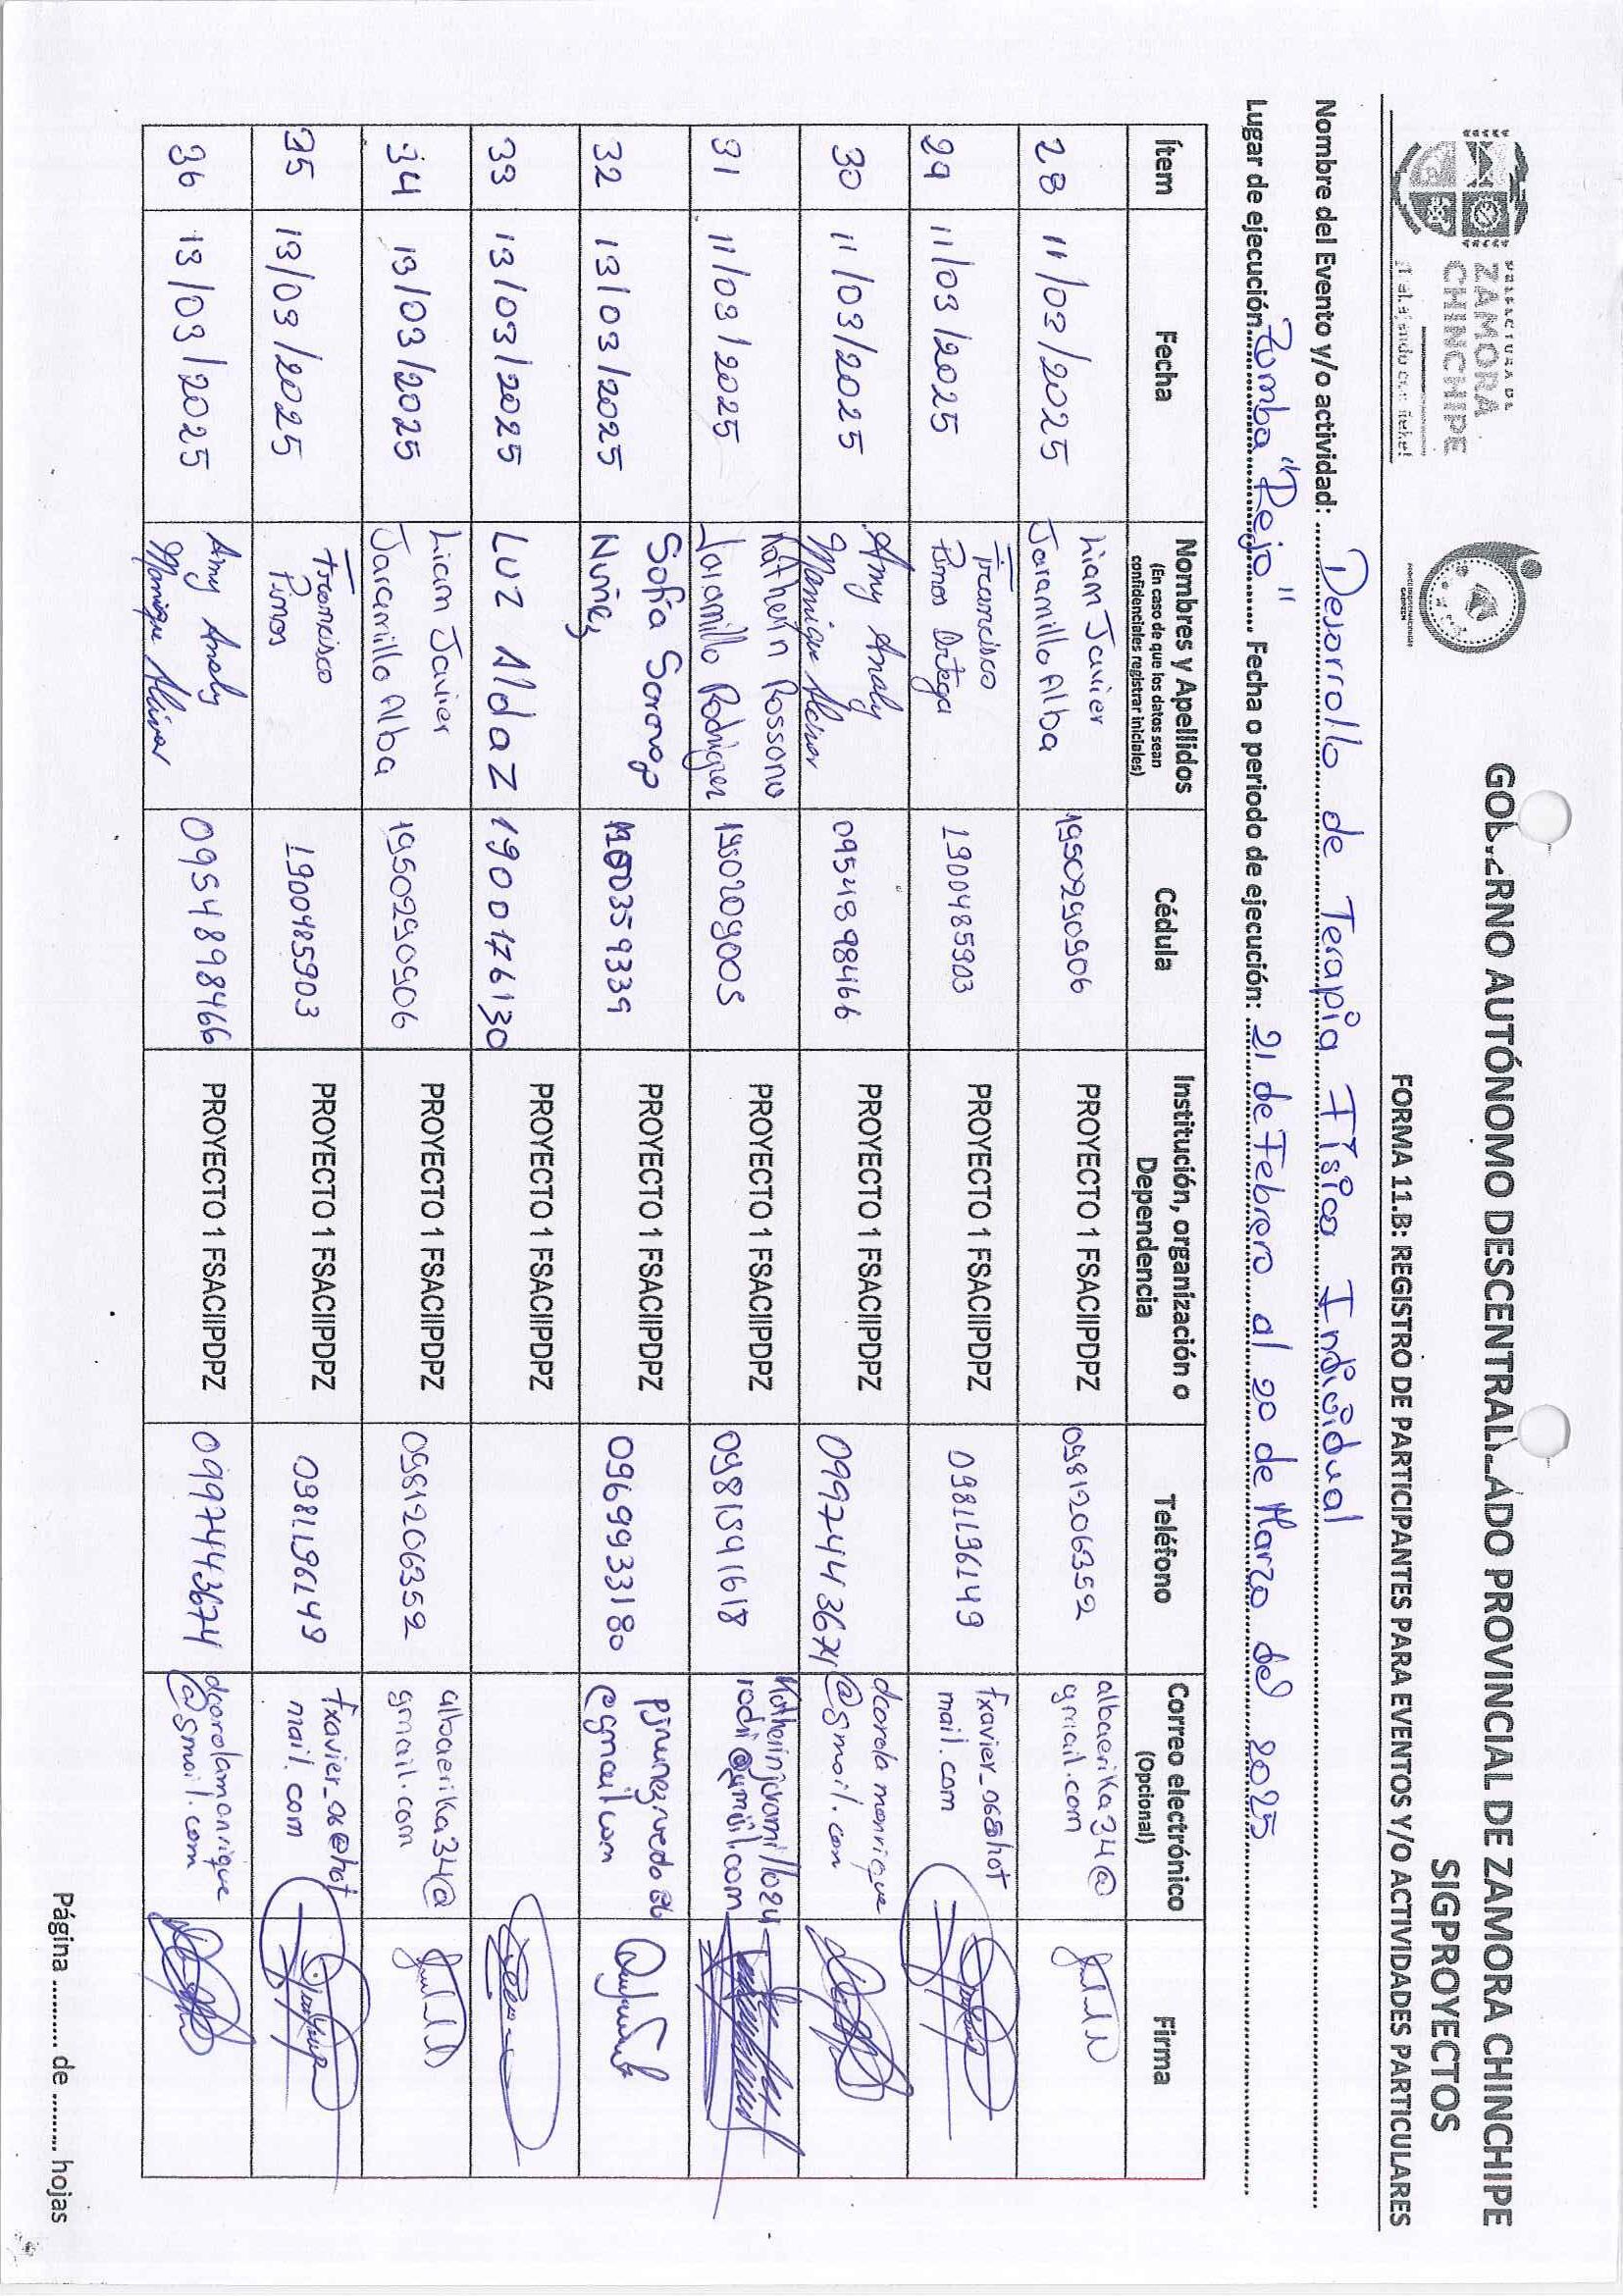 PREFECTURA DE
ZAMORA
CHINCHIPE
GOBIERNO AUTÓNOMO DESCENTRALIZADO PROVINCIAL DE ZAMORA CHINCHIPE
SIGPROYECTOS
FORMA 11.B: REGISTRO DE PARTICIPANTES PARA EVENTOS Y/O ACTIVIDADES PARTICULARES
Nombre del Evento y/o actividad: Desarrollo de Terapia Física Individual
Lugar de ejecución: Pumba "Rejo" Fecha o periodo de ejecución: 21 de Febrero al 20 de Marzo del 2025
Ítem Fecha Nombres y Apellidos (En caso de que los datos sean confidenciales registrar iniciales) Cédula Institución, organización o Dependencia Teléfono Correo electrónico (Opcional) Firma
28 11/03/2025 Liam Javier Jaramillo Alba 1950290906 PROYECTO 1 FSACIIPDPZ 0981206352 albaerika34@gmail.com
29 11/03/2025 Francisco Pinos Ortega 1900485903 PROYECTO 1 FSACIIPDPZ 0981196149 fxavier_06@hotmail.com
30 11/03/2025 Amy Analy Manrique 0954898466 PROYECTO 1 FSACIIPDPZ 0997443674 dcarolamanrique@gmail.com
31 11/03/2025 Katherin Rossana Jaramillo Rodriguez 1950209005 PROYECTO 1 FSACIIPDPZ 0981591618 Katherinjaramillo24rodri@gmail.com
32 13/03/2025 Sofía Sarango Nuñez PROYECTO 1 FSACIIPDPZ 0969933180 @gmail.com
33 13/03/2025 Luz Aldaz 1900176130 PROYECTO 1 FSACIIPDPZ
34 13/03/2025 Liam Javier Jaramillo Alba 1950290906 PROYECTO 1 FSACIIPDPZ 0981206352 albaerika34@gmail.com
35 13/03/2025 Francisco Pinos 1900485903 PROYECTO 1 FSACIIPDPZ 0981196149 fxavier_06@hotmail.com
36 13/03/2025 Amy Analy Manrique 0954898466 PROYECTO 1 FSACIIPDPZ 0997443674 dcarolamanrique@gmail.com
Página .......... de .......... hojas